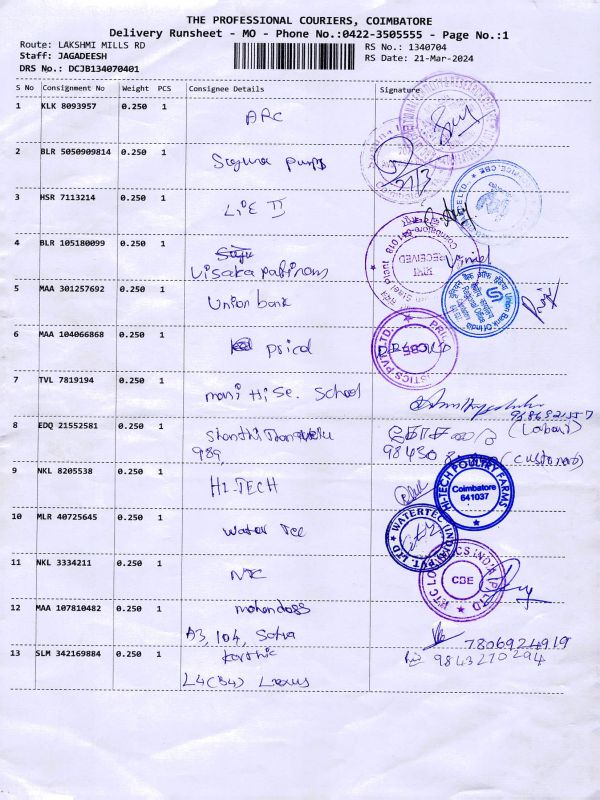 THE PROFESSIONAL COURIERS, COIMBATORE
Delivery Runsheet - MO - Phone No.:0422-3505555 - Page No.:1
Route: LAKSHMI MILLS RD
RS No.: 1340704
Staff: JAGADEESH
RS Date: 21-Mar-2024
DRS No.: DCJB134070401
S No Consignment No Weight PCS Consignee Details Signature
1 KLK 8093957 0.250 1 ARC
2 BLR 5050909814 0.250 1 Suguna pumps
21/3
3 HSR 7113214 0.250 1 LIE II
4 BLR 105180099 0.250 1
Visaka patinam Vimal
RECEIVED
5 MAA 301257692 0.250 1 Union bank
Union Bank Of India
6 MAA 104066868 0.250 1 pricol
7 TVL 7819194 0.250 1 mani Hi Se. School
8 EDQ 21552581 0.250 1 Shanthi
989, 98430
9 NKL 8205538 0.250 1 HI-TECH
HI-TECH POULTRY FARMS
Coimbatore
641037
10 MLR 40725645 0.250 1 Water Tec
WATERTEC (INDIA) PVT. LTD
11 NKL 3334211 0.250 1 NTC
CBE
12 MAA 107810482 0.250 1 mohandoss
A3, 104, 7806924919
13 SLM 342169884 0.250 1 Karthic 9843270294
L4(B4) Lexus